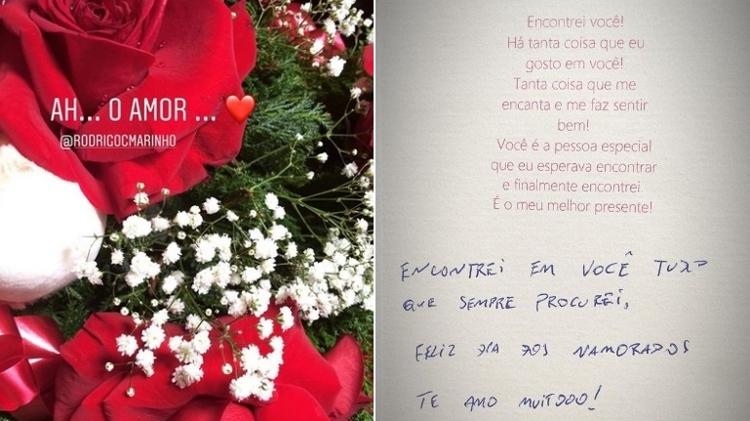 AH... O AMOR ... ❤️
@RODRIGOCMARINHO
Encontrei você!
Há tanta coisa que eu
gosto em você!
Tanta coisa que me
encanta e me faz sentir
bem!
Você é a pessoa especial
que eu esperava encontrar
e finalmente encontrei.
É o meu melhor presente!
ENCONTREI EM VOCÊ TUDO
QUE SEMPRE PROCUREI,
FELIZ DIA DOS NAMORADOS
TE AMO MUITOOO!